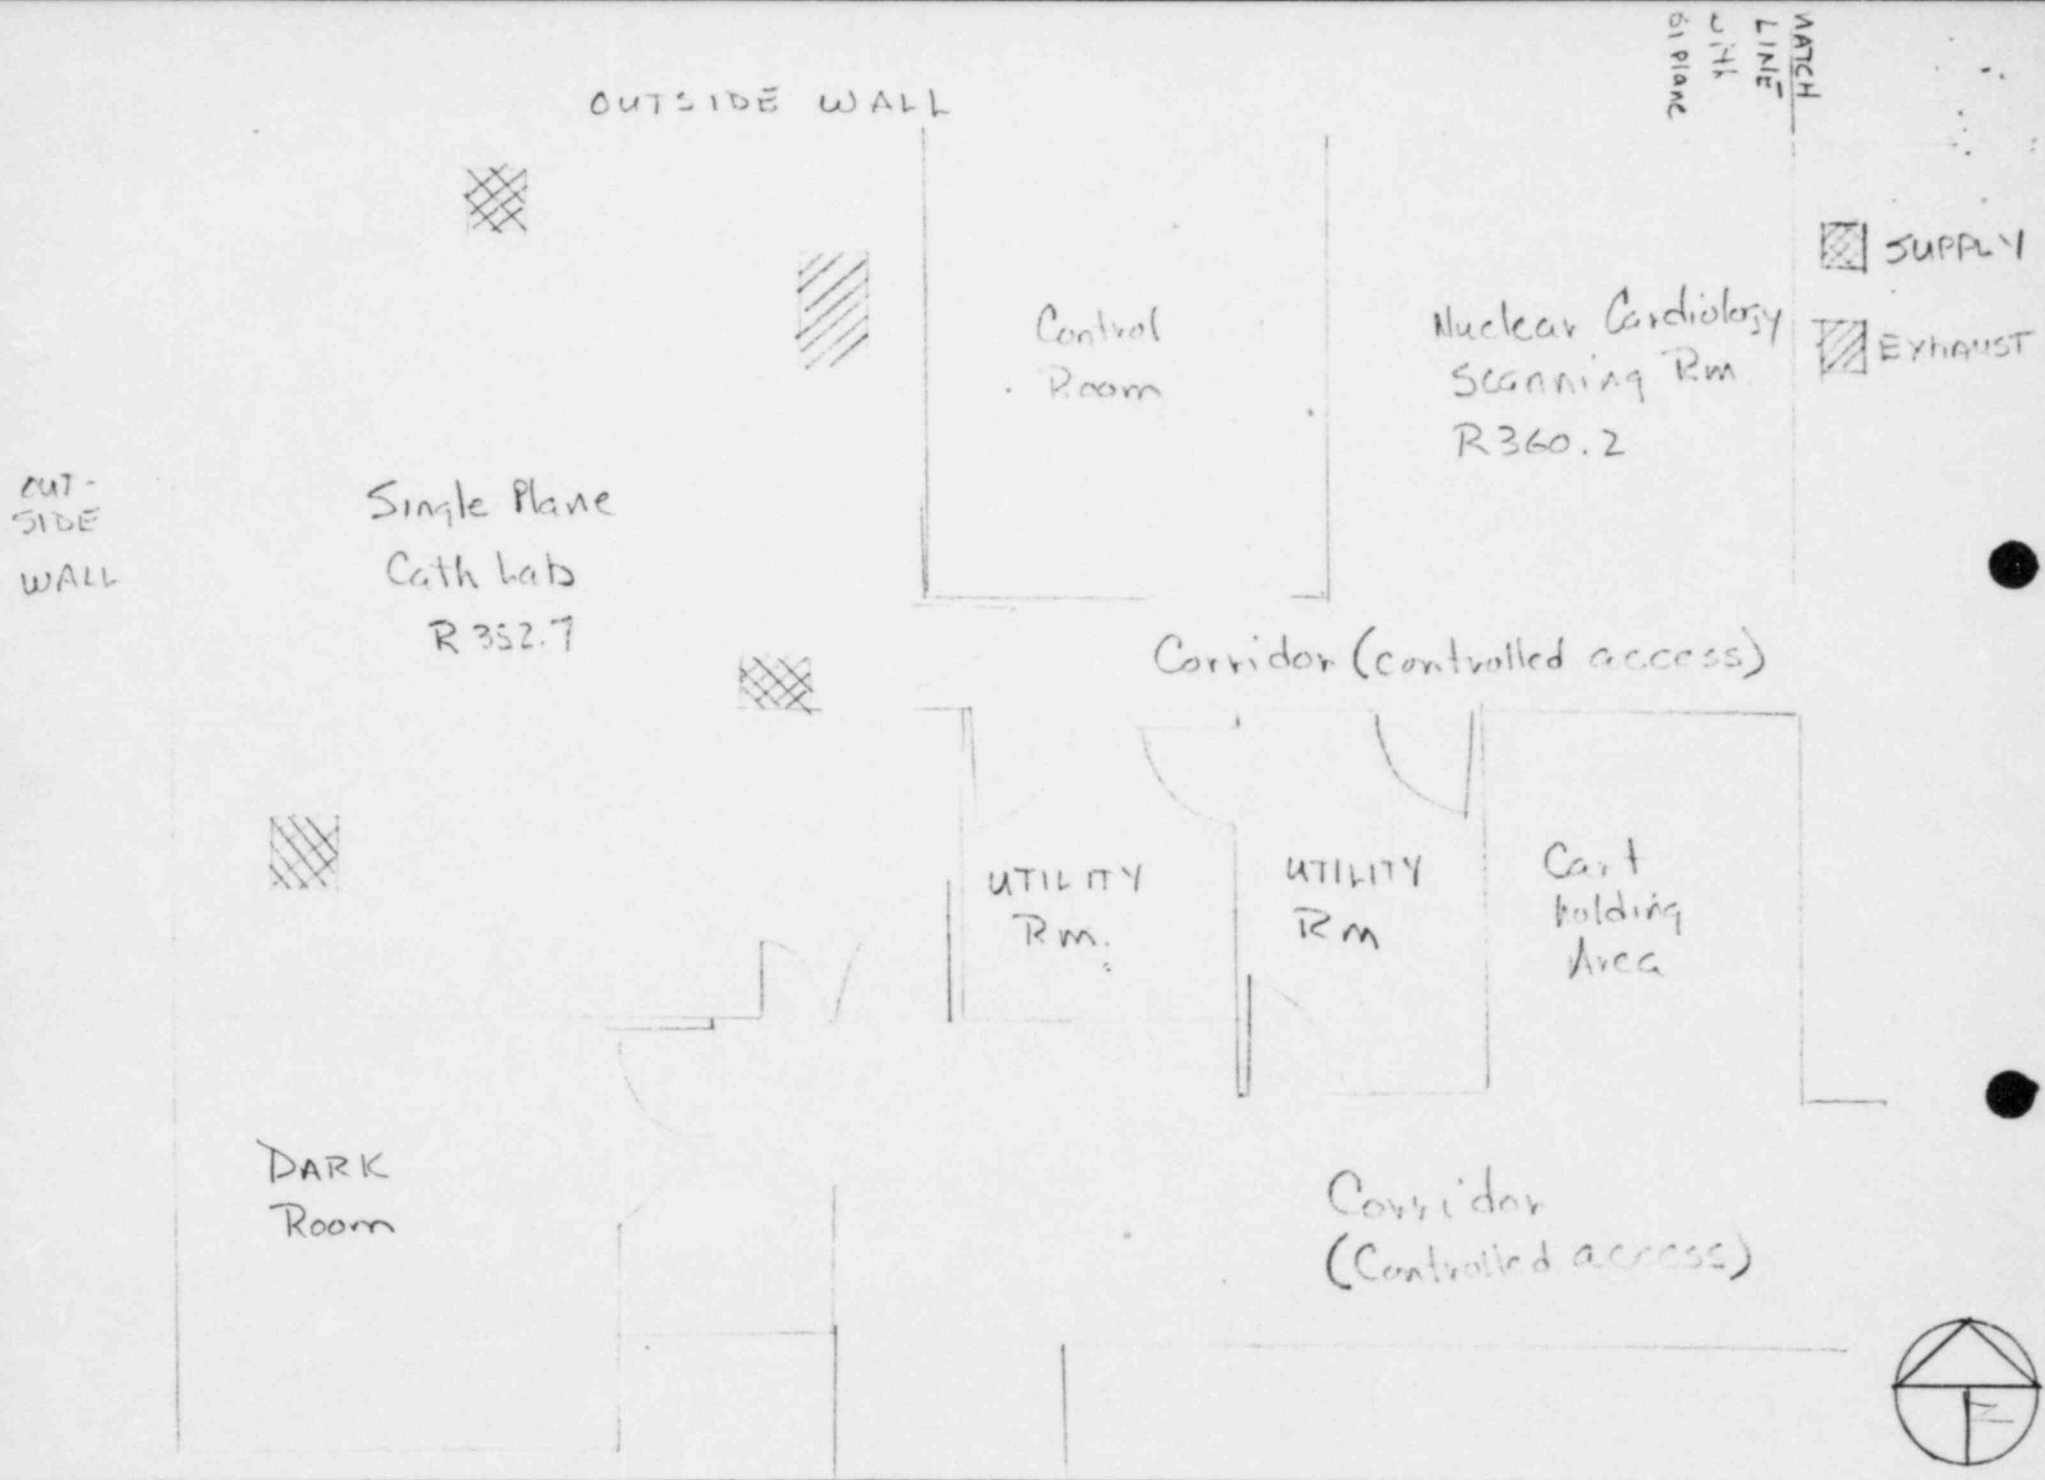 OUTSIDE WALL
MATCH
LINE
with
BiPlane
SUPPLY
EXHAUST
Control
Room
Nuclear Cardiology
Scanning Rm
R360.2
OUT-
SIDE
WALL
Single Plane
Cath Lab
R 352.7
Corridor (controlled access)
UTILITY
Rm.
UTILITY
Rm
Cart
holding
Area
DARK
Room
Corridor
(Controlled access)
N